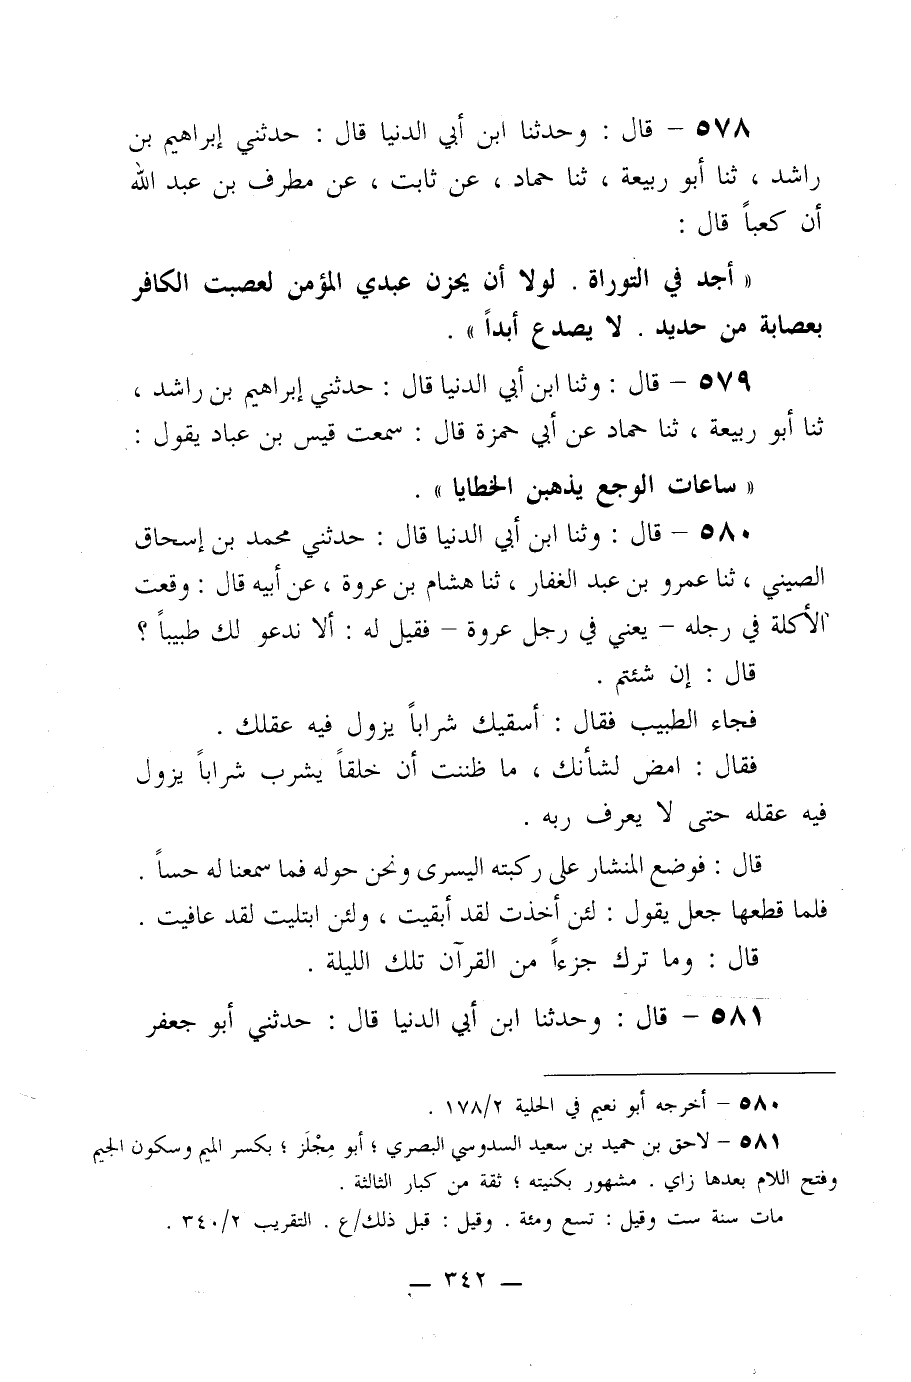 ٥٧٨ – قال : وحدثنا ابن أبي الدنيا قال : حدثني إبراهيم بن
راشد ، ثنا أبو ربيعة ، ثنا حماد ، عن ثابت ، عن مطرف بن عبد الله
أن كعباً قال :
« أجد في التوراة . لولا أن يحزن عبدي المؤمن لعصبت الكافر
بعصابة من حديد . لا يصدع أبداً » .
٥٧٩ – قال : وثنا ابن أبي الدنيا قال : حدثني إبراهيم بن راشد ،
ثنا أبو ربيعة ، ثنا حماد عن أبي حمزة قال : سمعت قيس بن عباد يقول :
« ساعات الوجع يذهبن الخطايا » .
٥٨٠ – قال : وثنا ابن أبي الدنيا قال : حدثني محمد بن إسحاق
الصيني ، ثنا عمرو بن عبد الغفار ، ثنا هشام بن عروة ، عن أبيه قال : وقعت
الأكلة في رجله – يعني في رجل عروة – فقيل له : ألا ندعو لك طبيباً ؟
قال : إن شئتم .
فجاء الطبيب فقال : أسقيك شراباً يزول فيه عقلك .
فقال : امض لشأنك ، ما ظننت أن خلقاً يشرب شراباً يزول
فيه عقله حتى لا يعرف ربه .
قال : فوضع المنشار على ركبته اليسرى ونحن حوله فما سمعنا له حساً .
فلما قطعها جعل يقول : لئن أخذت لقد أبقيت ، ولئن ابتليت لقد عافيت .
قال : وما ترك جزءاً من القرآن تلك الليلة .
٥٨١ – قال : وحدثنا ابن أبي الدنيا قال : حدثني أبو جعفر
٥٨٠ – أخرجه أبو نعيم في الحلية ١٧٨/٢ .
٥٨١ – لاحق بن حميد بن سعيد السدوسي البصري ؛ أبو مِجْلَز ؛ بكسر الميم وسكون الجيم
وفتح اللام بعدها زاي . مشهور بكنيته ؛ ثقة من كبار الثالثة .
مات سنة ست وقيل : تسع ومئة . وقيل : قبل ذلك/ع . التقريب ٣٤٠/٢ .
— ٣٤٢ —